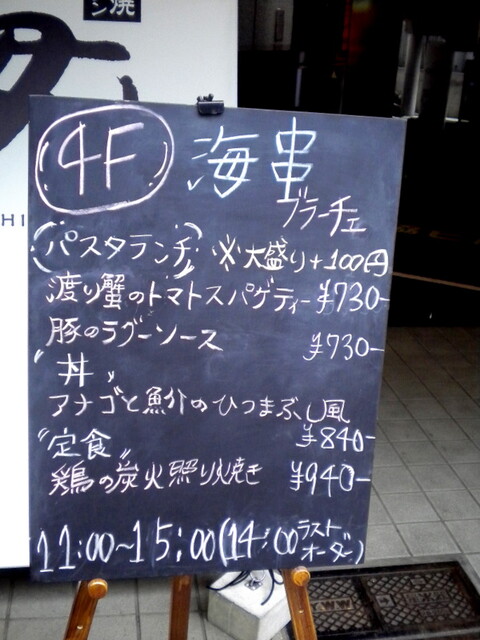 焼
4F 海串
ブラーチェ
(パスタランチ) ※大盛り+100円
渡り蟹のトマトスパゲティー ¥730-
豚のラグーソース ¥730-
"丼"
アナゴと魚介のひつまぶし風
¥840-
"定食"
鶏の炭火照り焼き ¥940-
11:00~15:00(14:00ラスト
オーダー)
HI